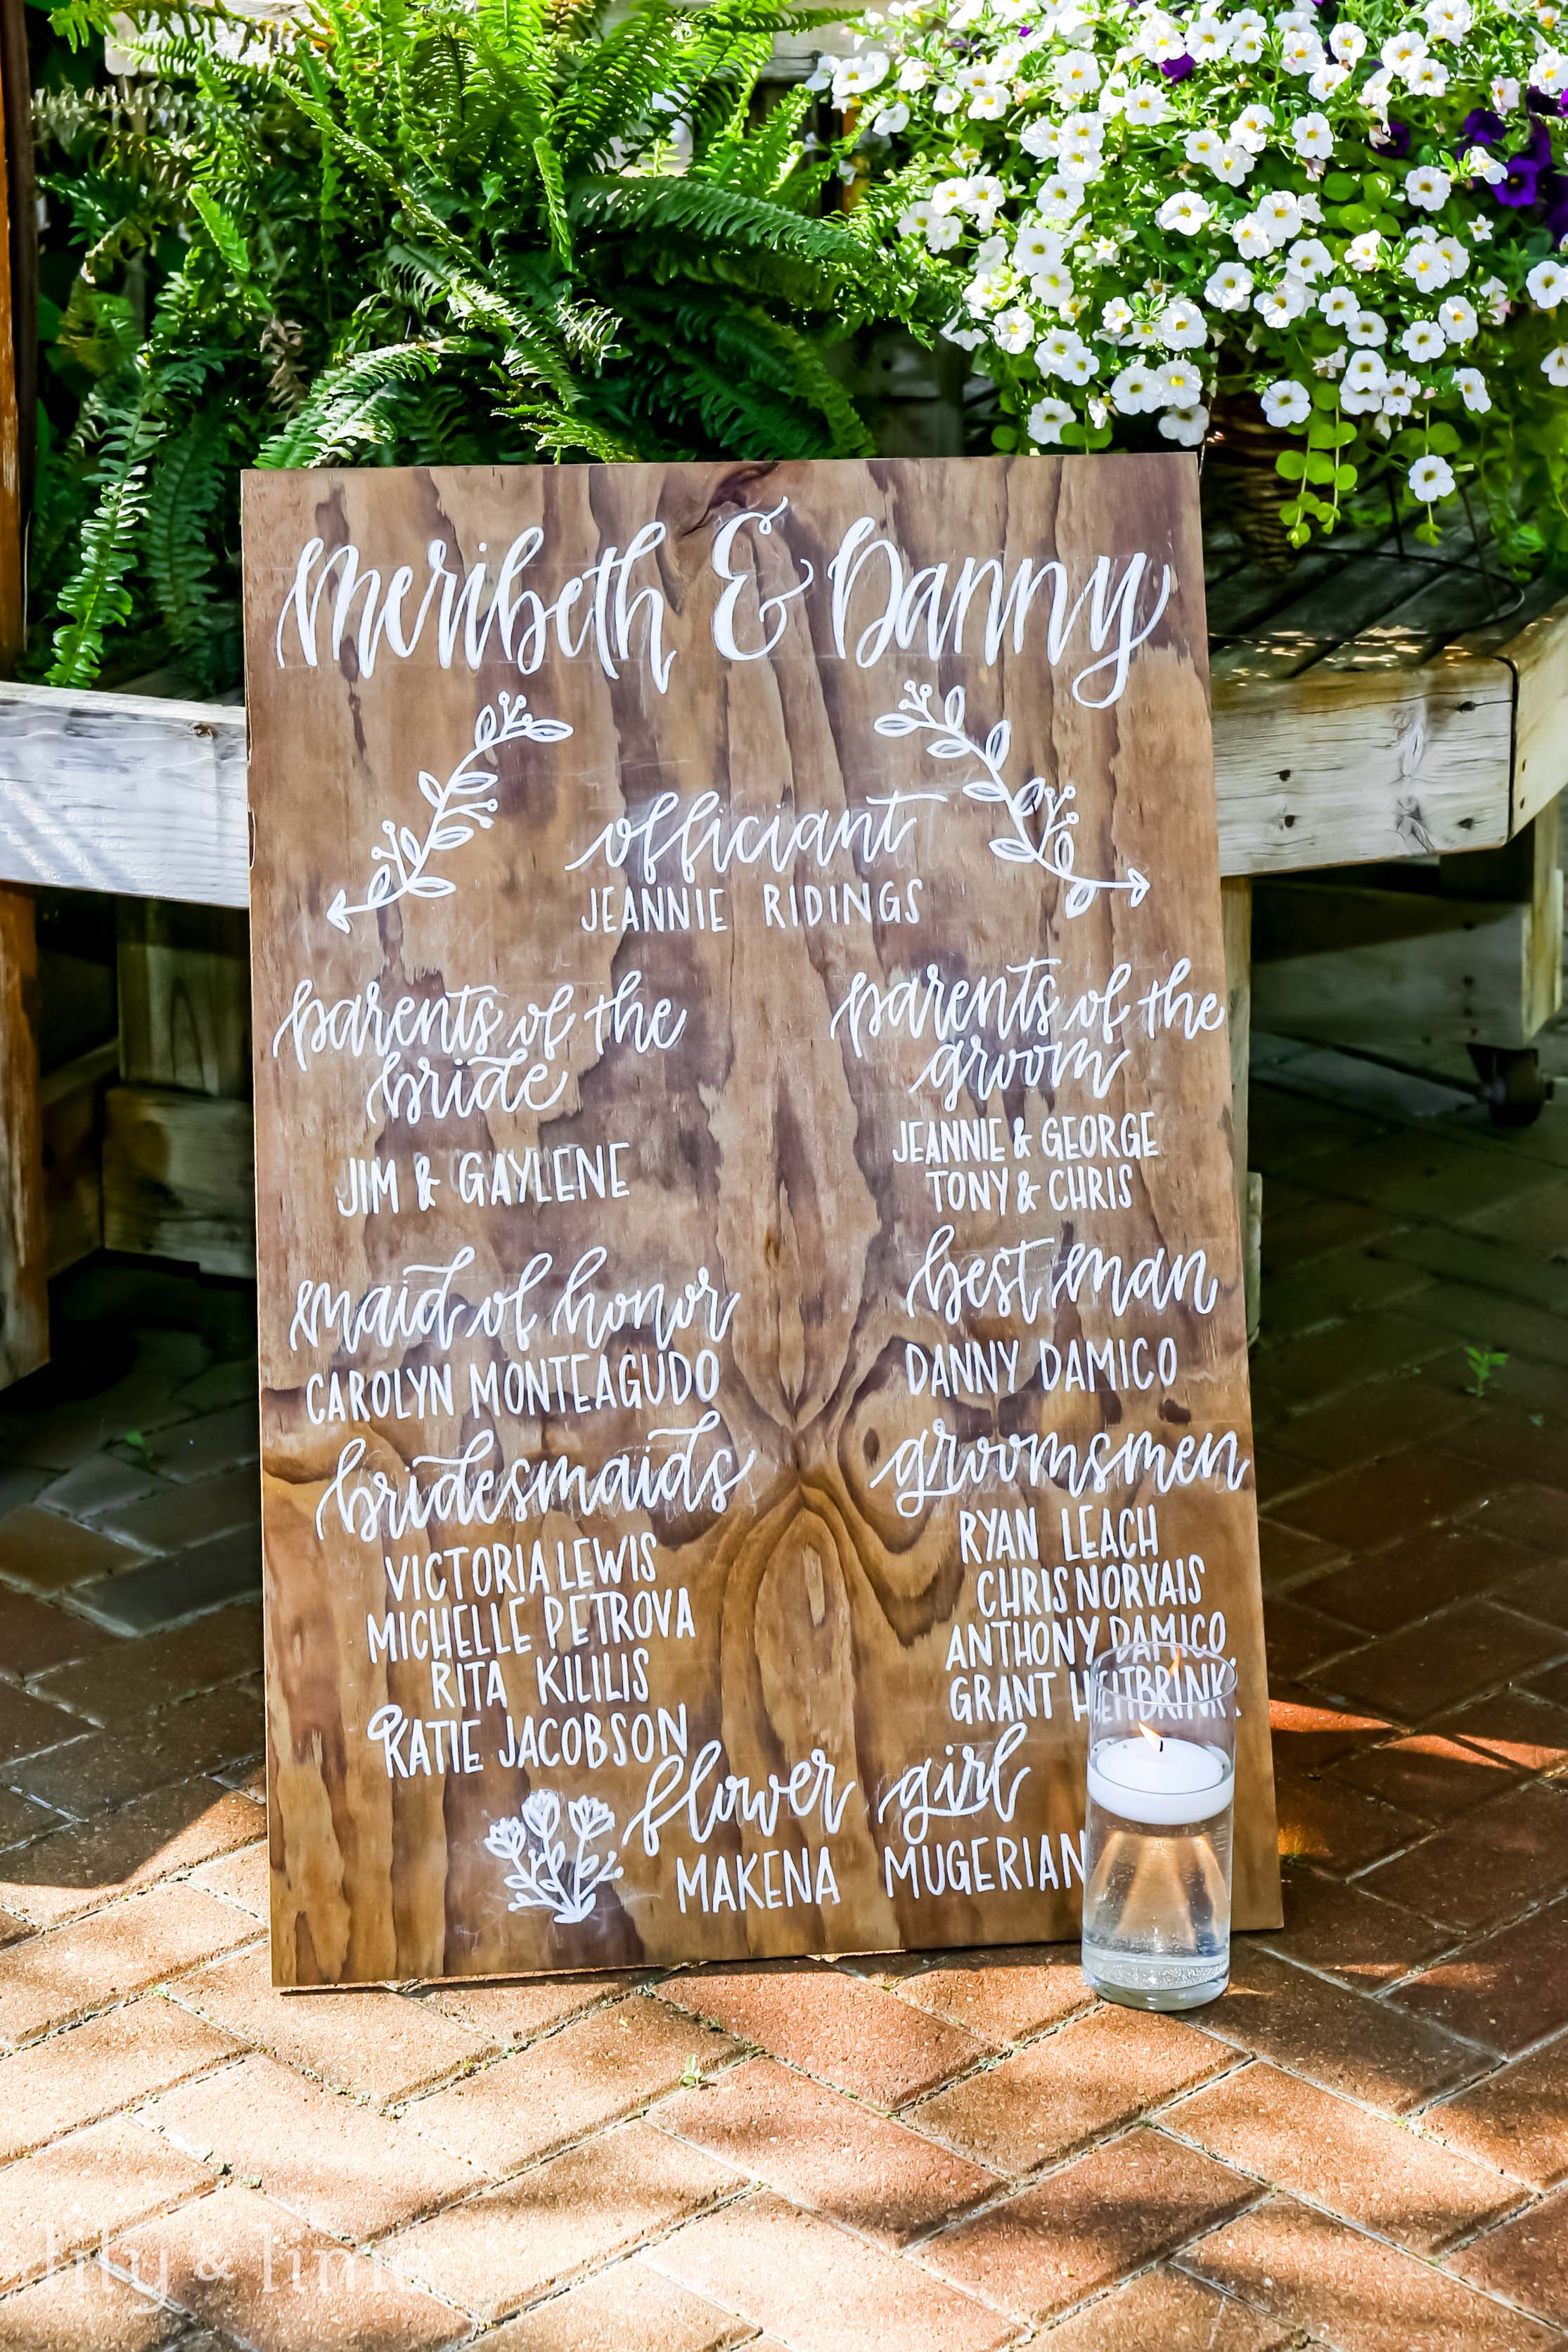 Meribeth & Danny
officiant
JEANNIE RIDINGS
parents of the
bride
JIM & GAYLENE
parents of the
groom
JEANNIE & GEORGE
TONY & CHRIS
maid of honor
CAROLYN MONTEAGUDO
best man
DANNY DAMICO
bridesmaids
VICTORIA LEWIS
MICHELLE PETROVA
RITA KILILIS
KATIE JACOBSON
groomsmen
RYAN LEACH
CHRIS NORVAIS
ANTHONY DAMICO
GRANT HEITBRINK
flower girl
MAKENA MUGERIAN
lily & lime